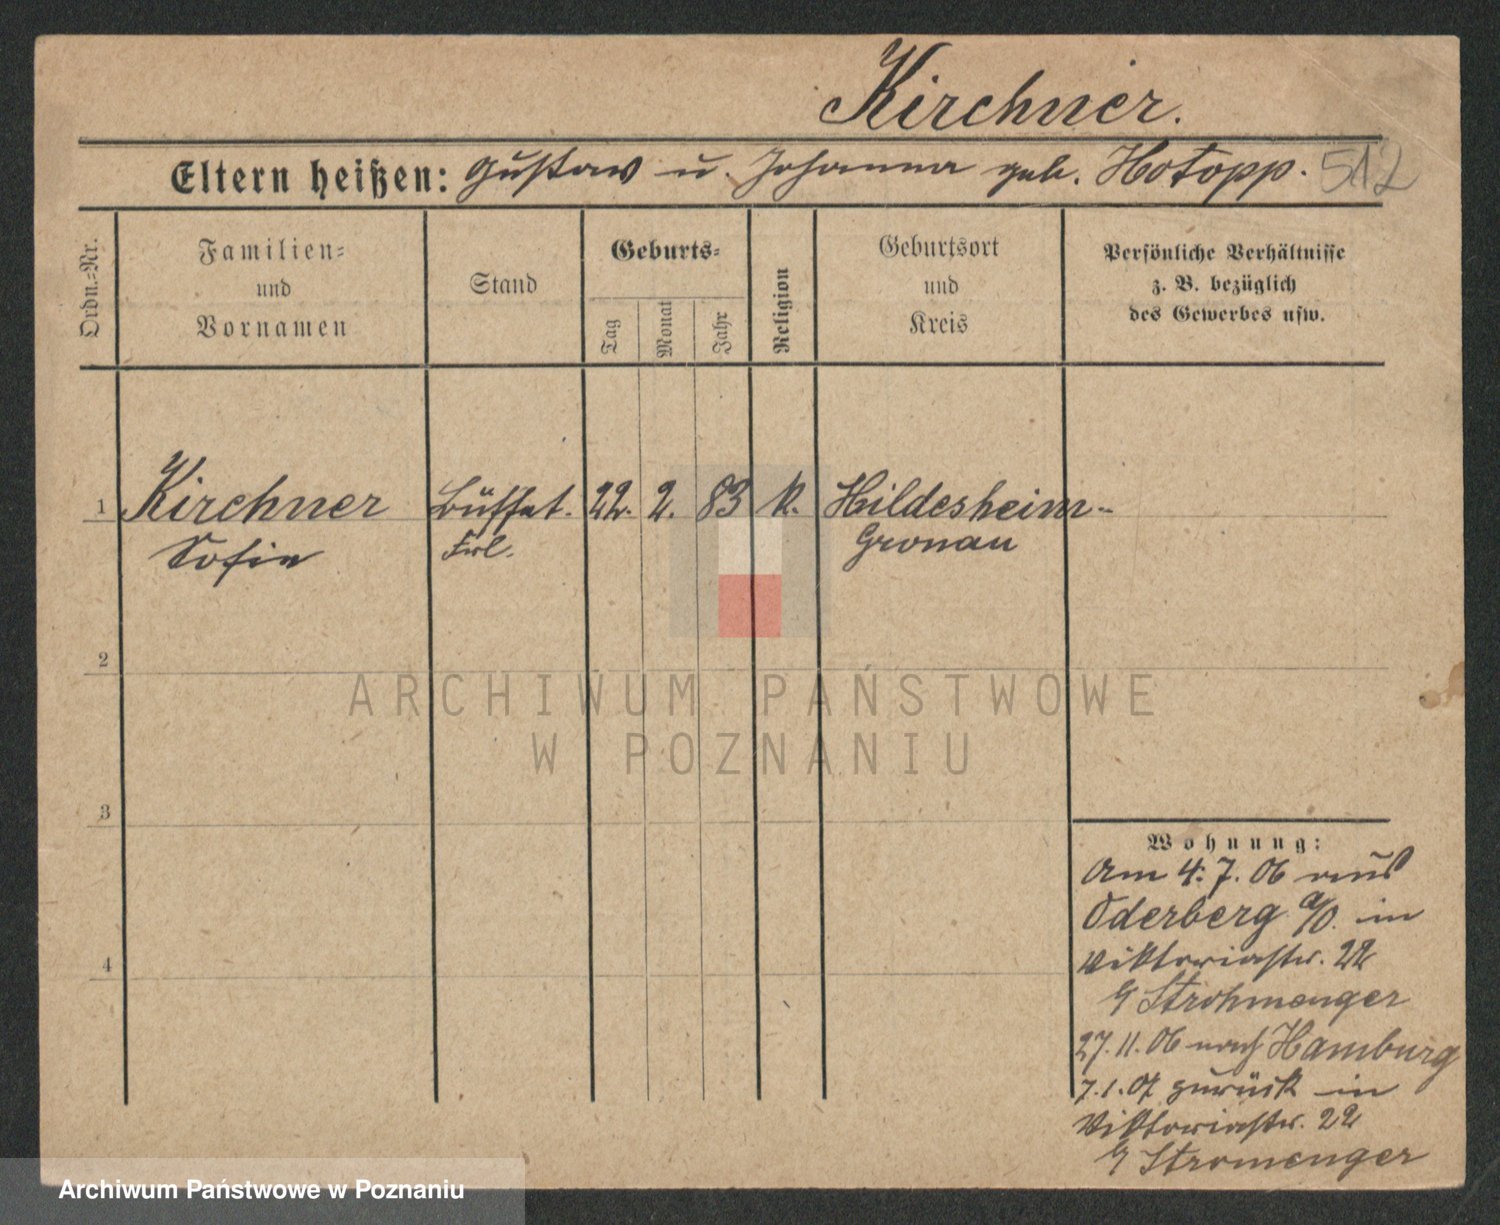 Kirchner.
Eltern heißen: Gustav u. Johanna geb. Hotopp. 512
Ordn.=Nr.
Familien=
und
Vornamen
Stand
Geburts=
Tag
Monat
Jahr
Religion
Geburtsort
und
Kreis
Persönliche Verhältnisse
z. B. bezüglich
des Gewerbes usw.
1 Kirchner Büffet. 22. 2. 83 k. Hildesheim-
Sofie Frl. Gronau
2
3
4
ARCHIWUM PAŃSTWOWE
W POZNANIU
Wohnung:
Am 4.7.06 aus
Oderberg a/O. in
Viktoriastr. 22
Strohmenger
27.11.06 nach Hamburg
7.1.07 zurück in
Viktoriastr. 22
Stromenger
Archiwum Państwowe w Poznaniu